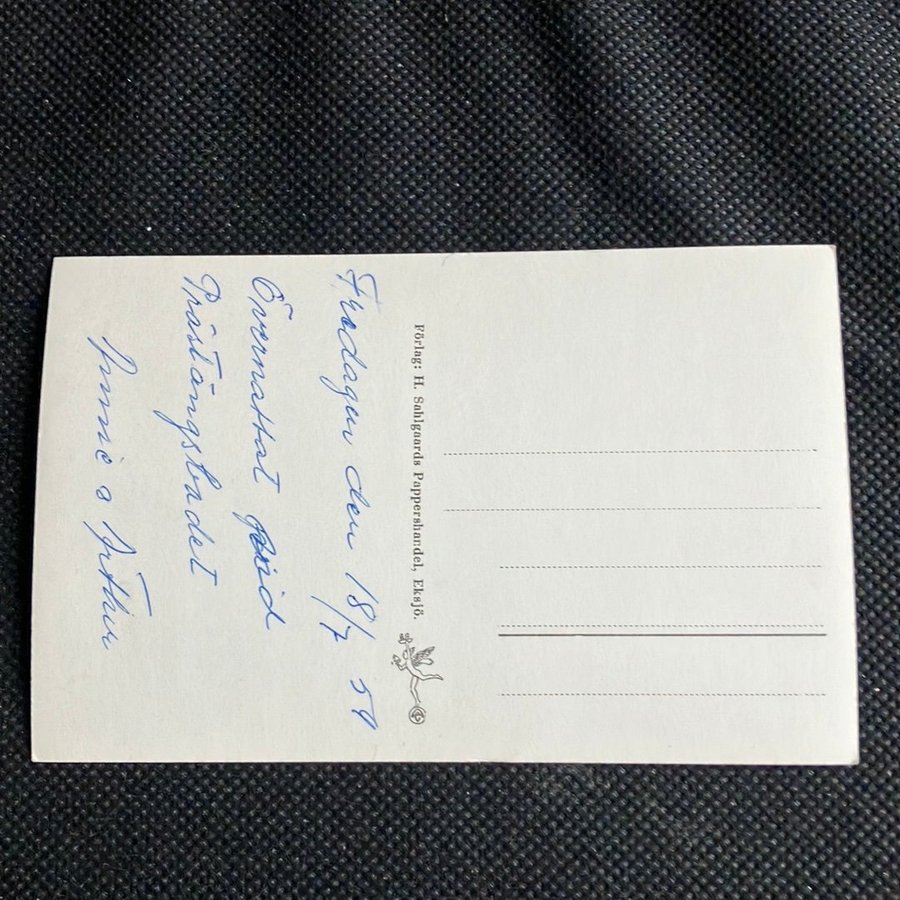 Fredagen den 18/7 59
Övernattat vid
Prästängsbadet
Annie o Arthur
Förlag: H. Sahlgaards Pappershandel, Eksjö.